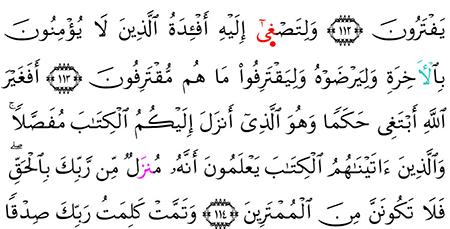 يَفْتَرُونَ ۝١١٢ وَلِتَصْغِىٰٓ إِلَيْهِ أَفْـِٔدَةُ ٱلَّذِينَ لَا يُؤْمِنُونَ
بِٱلْأَخِرَةِ وَلِيَرْضَوْهُ وَلِيَقْتَرِفُوا۟ مَا هُم مُّقْتَرِفُونَ ۝١١٣ أَفَغَيْرَ
ٱللَّهِ أَبْتَغِى حَكَمًا وَهُوَ ٱلَّذِىٓ أَنزَلَ إِلَيْكُمُ ٱلْكِتَٰبَ مُفَصَّلًا ۚ
وَٱلَّذِينَ ءَاتَيْنَٰهُمُ ٱلْكِتَٰبَ يَعْلَمُونَ أَنَّهُۥ مُنزَلٌ مِّن رَّبِّكَ بِٱلْحَقِّ ۖ
فَلَا تَكُونَنَّ مِنَ ٱلْمُمْتَرِينَ ۝١١٤ وَتَمَّتْ كَلِمَتُ رَبِّكَ صِدْقًا